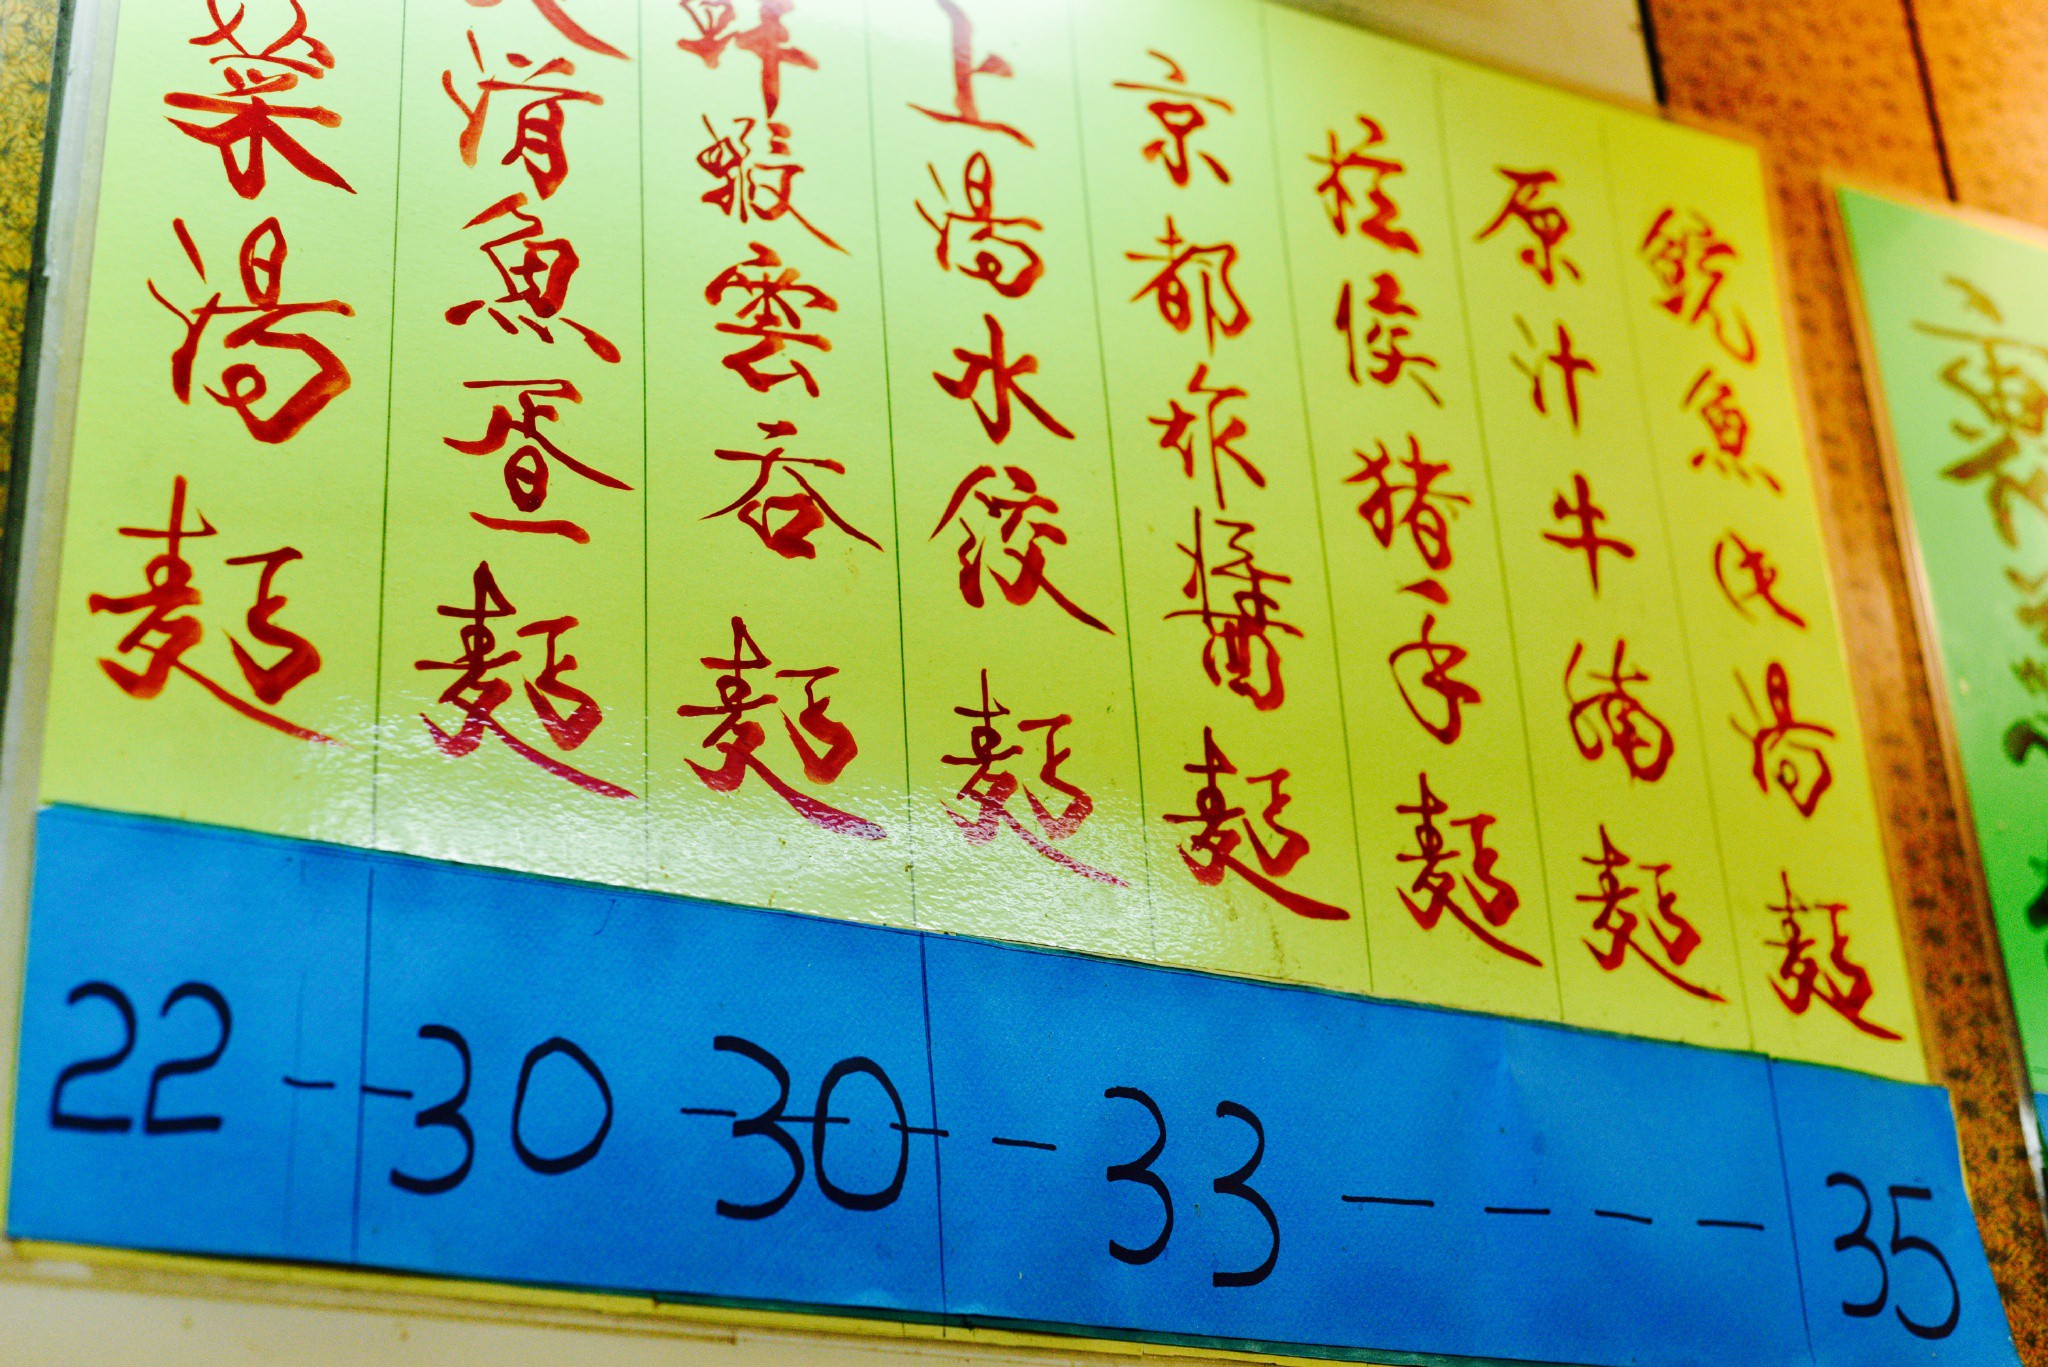 鯇魚湯麵
原汁牛腩麵
柱侯猪手麵
京都炸醬麵
上湯水餃麵
鮮蝦雲吞麵
滑魚蛋麵
菜湯麵
22 -- 30 - 30 -- - 33 - - - - 35